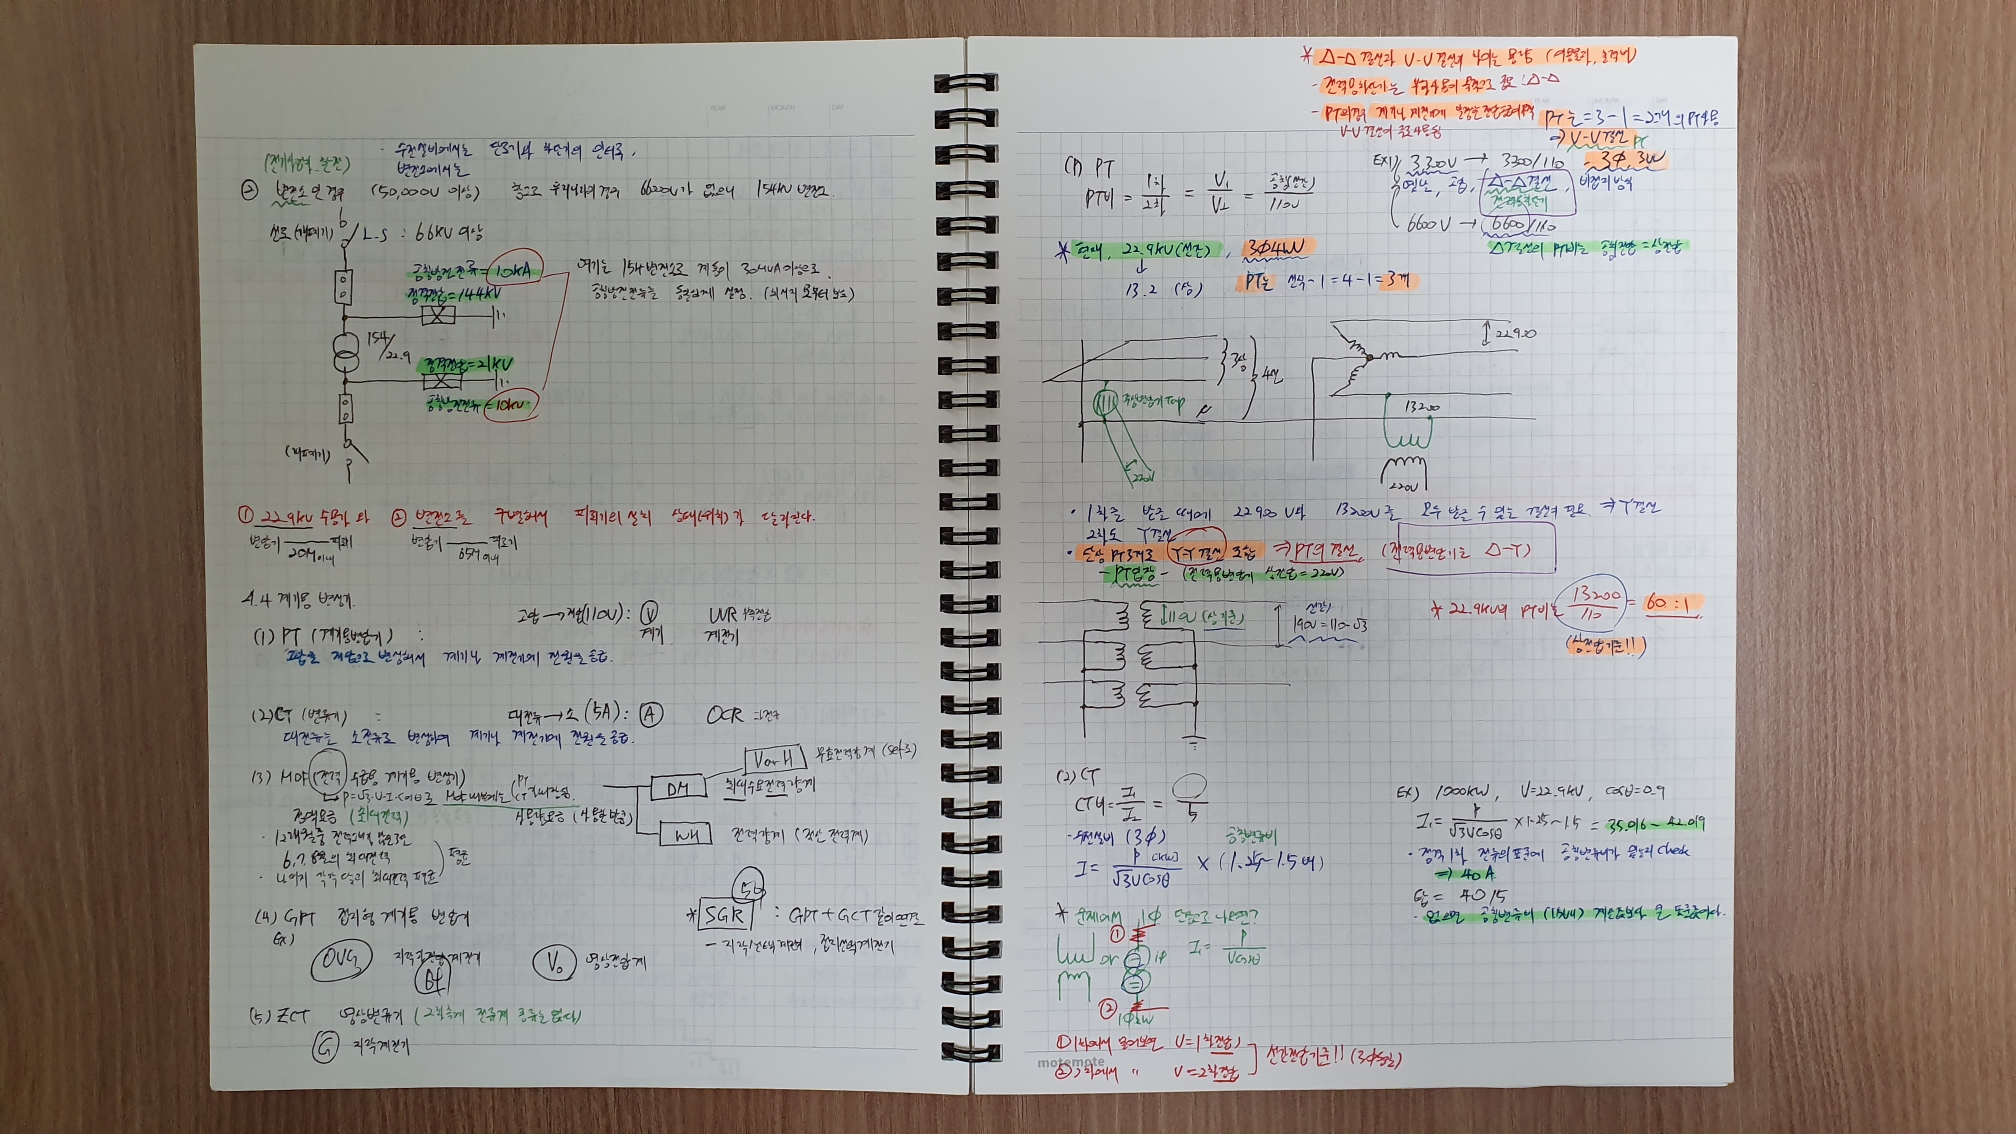 (전기사업자, 발전)
· 수전설비에서는 단로기와 차단기의 인터록,
변전소에서는
② 변전소인 경우 (50,000V 이상) 참고로 우리나라의 경우 66000V가 없으니 154kV 변전소.
선로(개폐기) L.S : 66kV 이상
공칭방전전류 = 10kA
정격전압 = 144kV
여기는 154변전소로 계통이 30MVA 이상으로,
공칭방전전류는 동일하게 설정.
154/22.9
정격전압 = 21kV
공칭방전전류 = 10kV
(개폐기)
① 22.9kV 수용가와 ② 변전소를 구별해서 피뢰기의 설치 상태(위치)가 달라진다.
변압기 20M이내 피뢰기 변압기 65M이내 피뢰기
4.4 계기용 변성기.
고압 → 저압(110V) : Ⓥ UVR 부족전압
(1) PT (계기용변압기) : 계기 계전기
고압을 저압으로 변성해서 계기나 계전기에 전원을 공급.
(2) CT (변류기) : 대전류 → 소 (5A) : Ⓐ OCR 과전류
대전류를 소전류로 변성하여 계기나 계전기에 전원을 공급.
VarH 무효전력량계
(3) MOF (전력 수급용 계기용 변성기)
P=√3·V·I·cosθ로 MOF 내부에는 (PT CT 가 내장됨.
DM 최대수요전력량계
전력요금 (최대전력) 사용량요금 (사용한 만큼)
WH 전력량계 (적산전력계)
· 12개월중
6, 7, 8월의 최대전력
평균
· 나머지 각각 달의 최대전력 평균
(4) GPT 접지형 계기용 변압기
Ex)
OVG 지락과전압계전기
64
V₀ 영상전압계
50
* SGR : GPT + GCT 같이 쓰므로
- 지락선택계전기, 접지선택계전기
(5) ZCT 영상변류기 (2차측에 전류계 종류는 없다)
G 지락계전기
* △-△결선과 V-V결선의 차이는 용량 (이용률과, 출력비)
- 전력용변압기는 부하사용이 목적으로 주로 : △-△
- PT의경우 계기나 계전기에 일정한 전압공급이 목적
V-V결선이 주로사용됨
PT는 = 3-1 = 2개의 PT사용
⇒ V-V결선 PT
(1) PT
PT비 = 1차/2차 = V₁/V₂ = 공칭(선간)/110V
EX) 3300V → 3300/110 - 3Φ 3W
옛날, 고압, △-△결선, 비접지방식
전력용변압기
6600V → 6600/110
△결선의 PT비는 공칭전압 = 상전압
* 현재, 22.9kV(선간), 3Φ4W
13.2 (상)
PT는 선수-1 = 4-1 = 3개
3상
4선
주상변압기 Tap
220V
22900
13200
220V
· 1차를 받을 때에 22900V와 13200V를 모두 받을 수 있는 결선이 필요 ⇒ Y결선
2차도 Y결선
· 단상 PT 3개로 Y-Y결선 조합 ⇒ PT의 결선, (전력용변압기는 △-Y)
- PT입장 - (전력용변압기 상전압 = 220V)
110V (상기준)
선간)
190V = 110·√3
* 22.9kV의 PT비는 13200/110 = 60 : 1
(상전압기준!!)
(2) CT
CT비 = I₁/I₂ = /5
· 수전설비 (3Φ) 공칭변류비
I = P [kW]/√3VCosθ × (1.25~1.5배)
EX) 1000kW, V=22.9kV, cosθ=0.9
I₁ = P/√3VCosθ × 1.25~1.5 = 35.016~42.019
· 정격1차 전류의 표준에 공칭변류비가 있는지 check
⇒ 40A
답 = 40/5
· 없으면 공칭변류비 (1.5배) 계산값보다 큰 표준값이다.
* 문제에서 1Φ 단상으로 나오면?
① or 1Φ I₁ = P/VCosθ
②
1Φ2W
① 1차에서 물어보면 V = 1차전압
② 2차에서 〃 V = 2차전압
선간전압기준!! (3Φ동일)
motemote